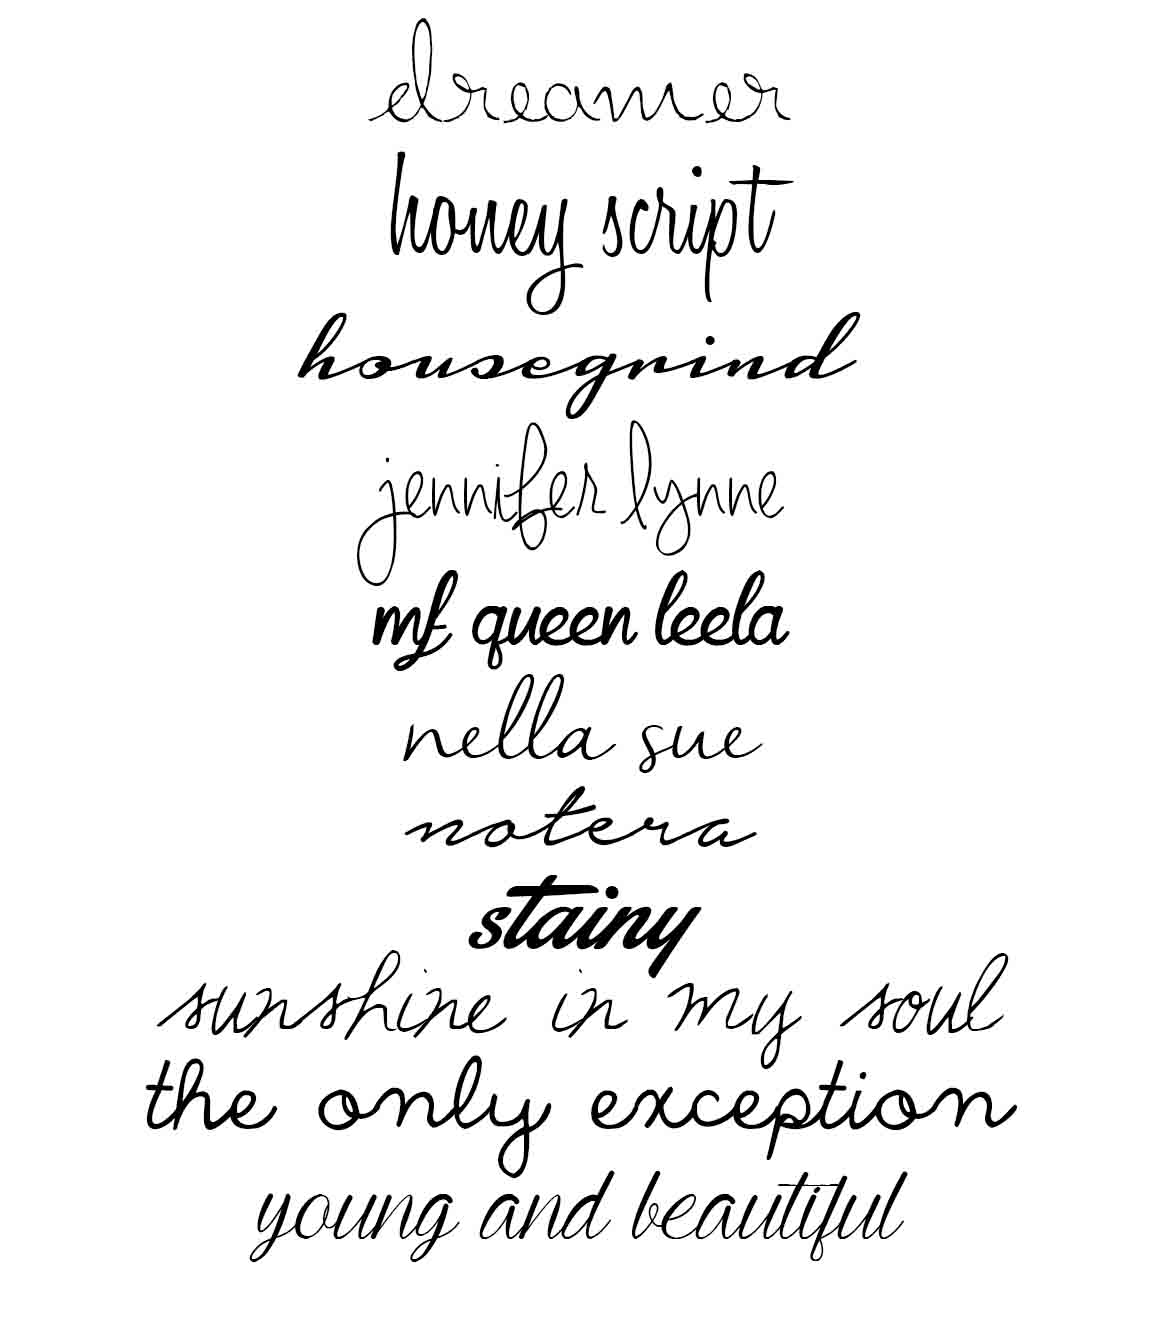 dreamer
honey script
housegrind
jennifer lynne
mf queen leela
nella sue
notera
stainy
sunshine in my soul
the only exception
young and beautiful